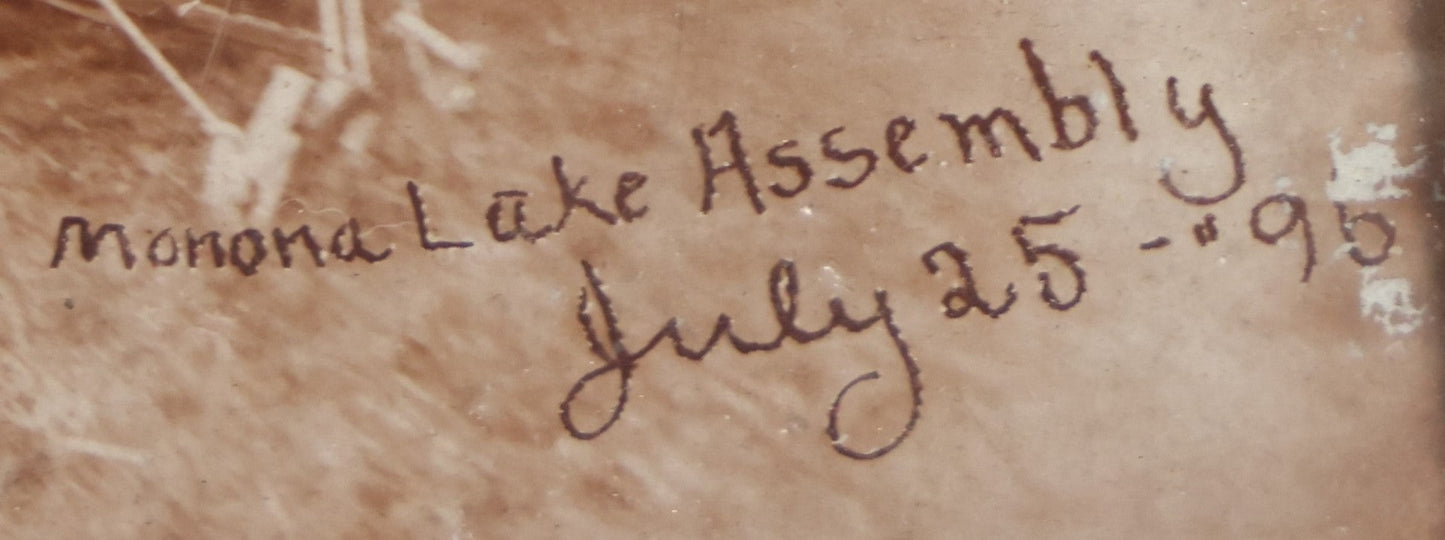 Monona Lake Assembly
July 25 - "95